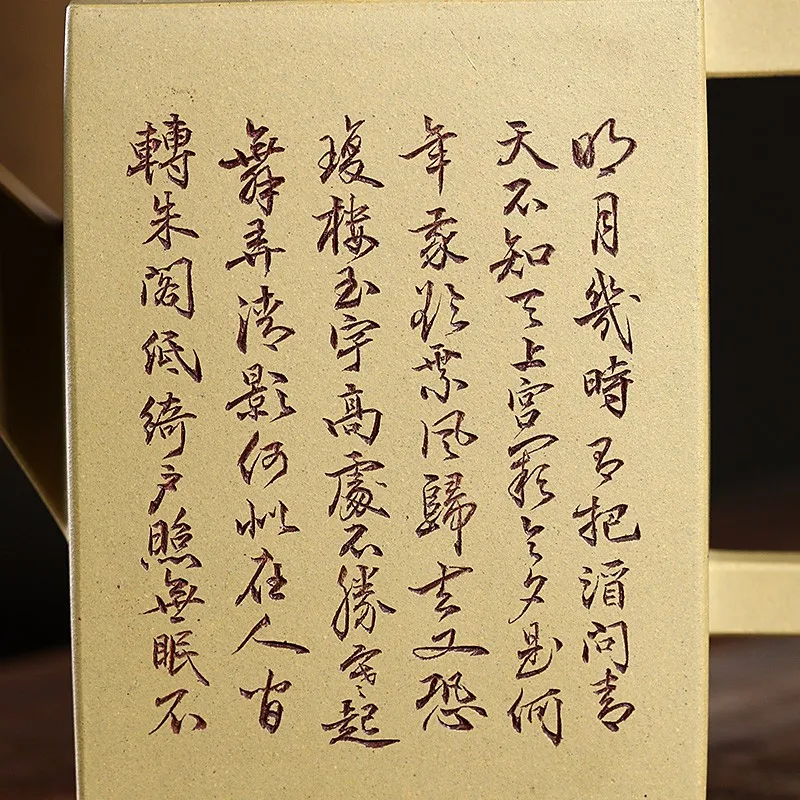 明月幾時有把酒問青
天不知天上宮闕今夕是何
年我欲乘風歸去又恐
瓊樓玉宇高處不勝寒起
舞弄清影何似在人間
轉朱閣低綺戶照無眠不